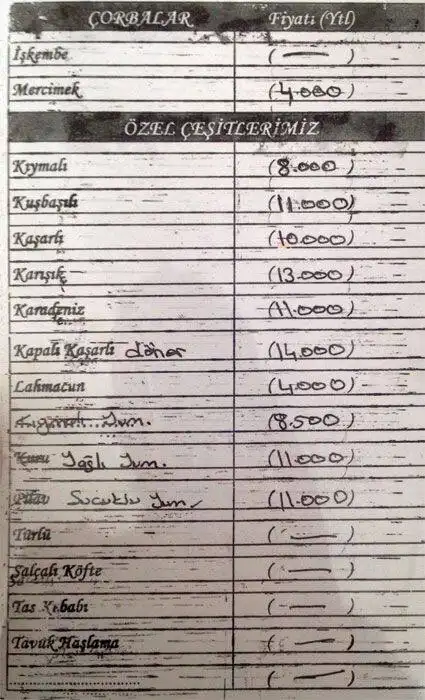 ÇORBALAR Fiyatı (Ytl)
İşkembe ( — )
Mercimek (4.000)
ÖZEL ÇEŞİTLERİMİZ
Kıymalı (8.000)
Kuşbaşılı (11.000)
Kaşarlı (10.000)
Karışık (13.000)
Karadeniz (11.000)
Kapalı Kaşarlı döner (14.000)
Lahmacun (4.000)
Yum. (8.500)
Kuru Yağlı Yum. (11.000)
Pilav Sucuklu Yum. (11.000)
Türlü ( — )
Salçalı Köfte ( — )
Tas Kebabı ( — )
Tavuk Haşlama ( — )
.............................. ( — )